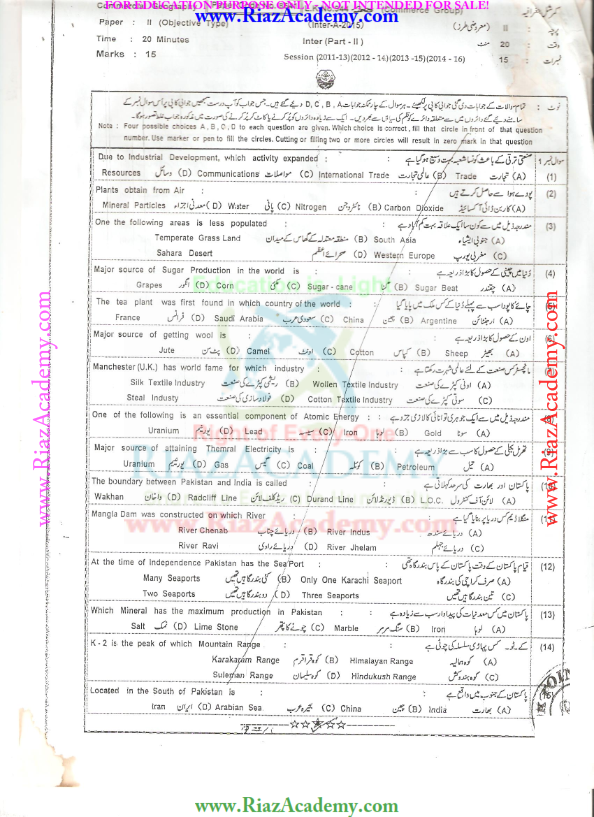 FOR EDUCATION PURPOSE ONLY - NOT INTENDED FOR ADS!
www.RiazAcademy.com
(Commerce Group)
Paper : II (Objective Type) (Inter-A-2015)
Time : 20 Minutes Inter (Part - II)
Marks : 15 Session (2011-13)(2012 - 14)(2013 -15)(2014 - 16)
II
20
15
Note : Four possible choices A , B , C , D to each question are given. Which choice is correct , fill that circle in front of that question
number. Use marker or pen to fill the circles. Cutting or filling two or more circles will result in zero mark in that question
Due to Industrial Development, which activity expanded : صنعتی ترقی کے باعث کونسا شعبہ بہت وسیع ہو گیا ہے سوال نمبر 1
Resources وسائل (D) Communications مواصلات (C) International Trade عالمی تجارت (B) Trade تجارت (A) (1)
Plants obtain from Air : پودے ہوا سے حاصل کرتے ہیں (2)
Mineral Particles معدنی اجزاء (D) Water پانی (C) Nitrogen نائٹروجن (B) Carbon Dioxide کاربن ڈائی آکسائیڈ (A)
One the following areas is less populated : مندرجہ ذیل میں سے کون سا ایک علاقہ بہت کم آباد ہے (3)
Temperate Grass Land منطقہ معتدلہ کے گھاس کے میدان (B) South Asia جنوبی ایشیاء (A)
Sahara Desert صحرائے اعظم (D) Western Europe مغربی یورپ (C)
Major source of Sugar Production in the world is : دنیا میں چینی کے حصول کا بڑا ذریعہ ہے (4)
Grapes انگور (D) Corn مکئی (C) Sugar-cane گنا (B) Sugar Beat چقندر (A)
The tea plant was first found in which country of the world : چائے کا پودا سب سے پہلے دنیا کے کس ملک میں پایا گیا
France فرانس (D) Saudi Arabia سعودی عرب (C) China چین (B) Argentine ارجنٹائن (A)
Major source of getting wool is : اون کے حصول کا بڑا ذریعہ ہے
Jute پٹ سن (D) Camel اونٹ (C) Cotton کپاس (B) Sheep بھیڑ (A)
Manchester (U.K.) has world fame for which industry : مانچسٹر کس صنعت کے لئے عالمی شہرت رکھتا ہے
Silk Textile Industry ریشمی کپڑے کی صنعت (B) Wollen Textile Industry اونی کپڑے کی صنعت (A)
Steal Industy فولاد سازی کی صنعت (D) Cotton Textile Industry سوتی کپڑے کی صنعت (C)
One of the following is an essential component of Atomic Energy : مندرجہ ذیل میں سے ایک جوہری توانائی کا لازمی جزو ہے
Uranium یورینیم (D) Lead سیسہ (C) Iron لوہا (B) Gold سونا (A)
Major source of attaining Themral Electricity is : تھرمل بجلی کے حصول کا سب سے بڑا ذریعہ ہے
Uranium یورینیم (D) Gas گیس (C) Coal کوئلہ (B) Petroleum تیل (A)
The boundary between Pakistan and India is called : پاکستان اور بھارت کی سرحد کہلاتی ہے
Wakhan واخان (D) Radcliff Line ریڈکلف لائن (C) Durand Line ڈیورنڈ لائن (B) L.O.C. لائن آف کنٹرول (A)
Mangla Dam was constructed on which River : منگلا ڈیم کس دریا پر بنایا گیا ہے
River Chenab دریائے چناب (B) River Indus دریائے سندھ (A)
River Ravi دریائے راوی (D) River Jhelam دریائے جہلم (C)
At the time of Independence Pakistan has the Sea Port : قیام پاکستان کے وقت پاکستان کے پاس بندرگاہ تھی (12)
Many Seaports کئی بندرگاہیں تھیں (B) Only One Karachi Seaport صرف کراچی کی بندرگاہ (A)
Two Seaports دو بندرگاہیں تھیں (D) Three Seaports تین بندرگاہیں تھیں (C)
Which Mineral has the maximum production in Pakistan : پاکستان میں کس معدنیات کی پیداوار سب سے زیادہ ہے (13)
Salt نمک (D) Lime Stone چونے کا پتھر (C) Marble سنگ مرمر (B) Iron لوہا (A)
K - 2 is the peak of which Mountain Range : کے۔ٹو۔ کس پہاڑی سلسلہ کی چوٹی ہے (14)
Karakaram Range کوہ قراقرم (B) Himalayan Range کوہ ہمالیہ (A)
Suleman Range کوہ سلیمان (D) Hindukush Range کوہ ہندوکش (C)
Located in the South of Pakistan is : پاکستان کے جنوب میں واقع ہے
Iran ایران (D) Arabian Sea بحیرہ عرب (C) China چین (B) India بھارت (A)
Right of Every One
RIAZ ACADEMY
www.RiazAcademy.com
www.RiazAcademy.com
www.RiazAcademy.com
www.RiazAcademy.com